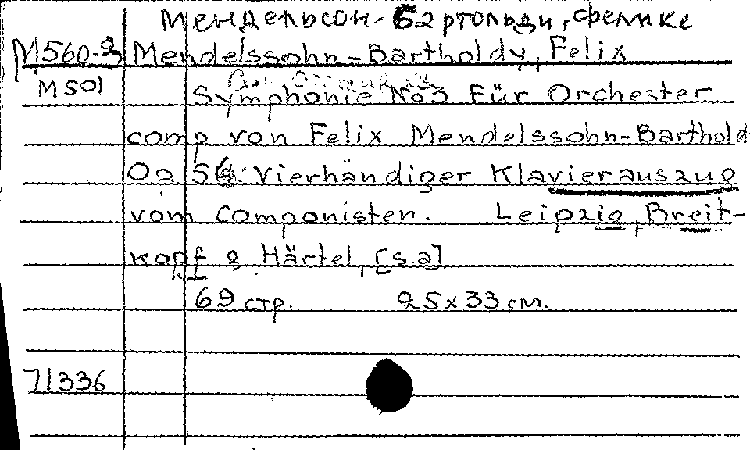 Мендельсон-Бартольди, Феликс
М560-9 Mendelssohn-Bartholdy, Felix
М501 Symphonie No3 Für Orchester
comp von Felix Mendelssohn-Barthold
Op 56. Vierhändiger Klavierauszug
vom Componisten. Leipzig, Breit-
kopf & Härtel, [s.a]
69 стр. 25x33 см.
71336